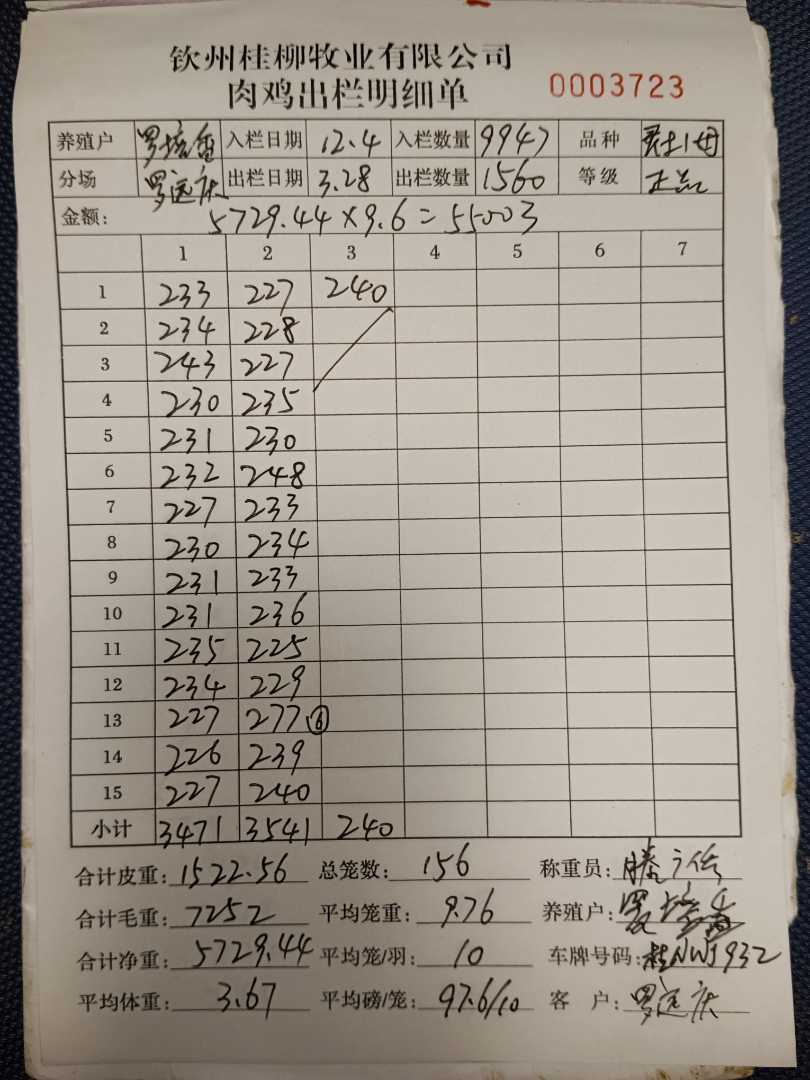 钦州桂柳牧业有限公司
肉鸡出栏明细单 0003723
养殖户 罗培香 入栏日期 12.4 入栏数量 9947 品种
分场 罗远庆 出栏日期 3.28 出栏数量 1560 等级 正品
金额: 5729.44×9.6=55003
1 2 3 4 5 6 7
1 233 227 240
2 234 228
3 243 227
4 230 235
5 231 230
6 232 248
7 227 233
8 230 234
9 231 233
10 231 236
11 235 225
12 234 229
13 227 277 ⑥
14 226 239
15 227 240
小计 3471 3541 240
合计皮重: 1522.56 总笼数: 156 称重员:
合计毛重: 7252 平均笼重: 9.76 养殖户: 罗培香
合计净重: 5729.44 平均笼/羽: 10 车牌号码: 桂NWJ932
平均体重: 3.67 平均磅/笼: 97.6/10 客 户: 罗远庆